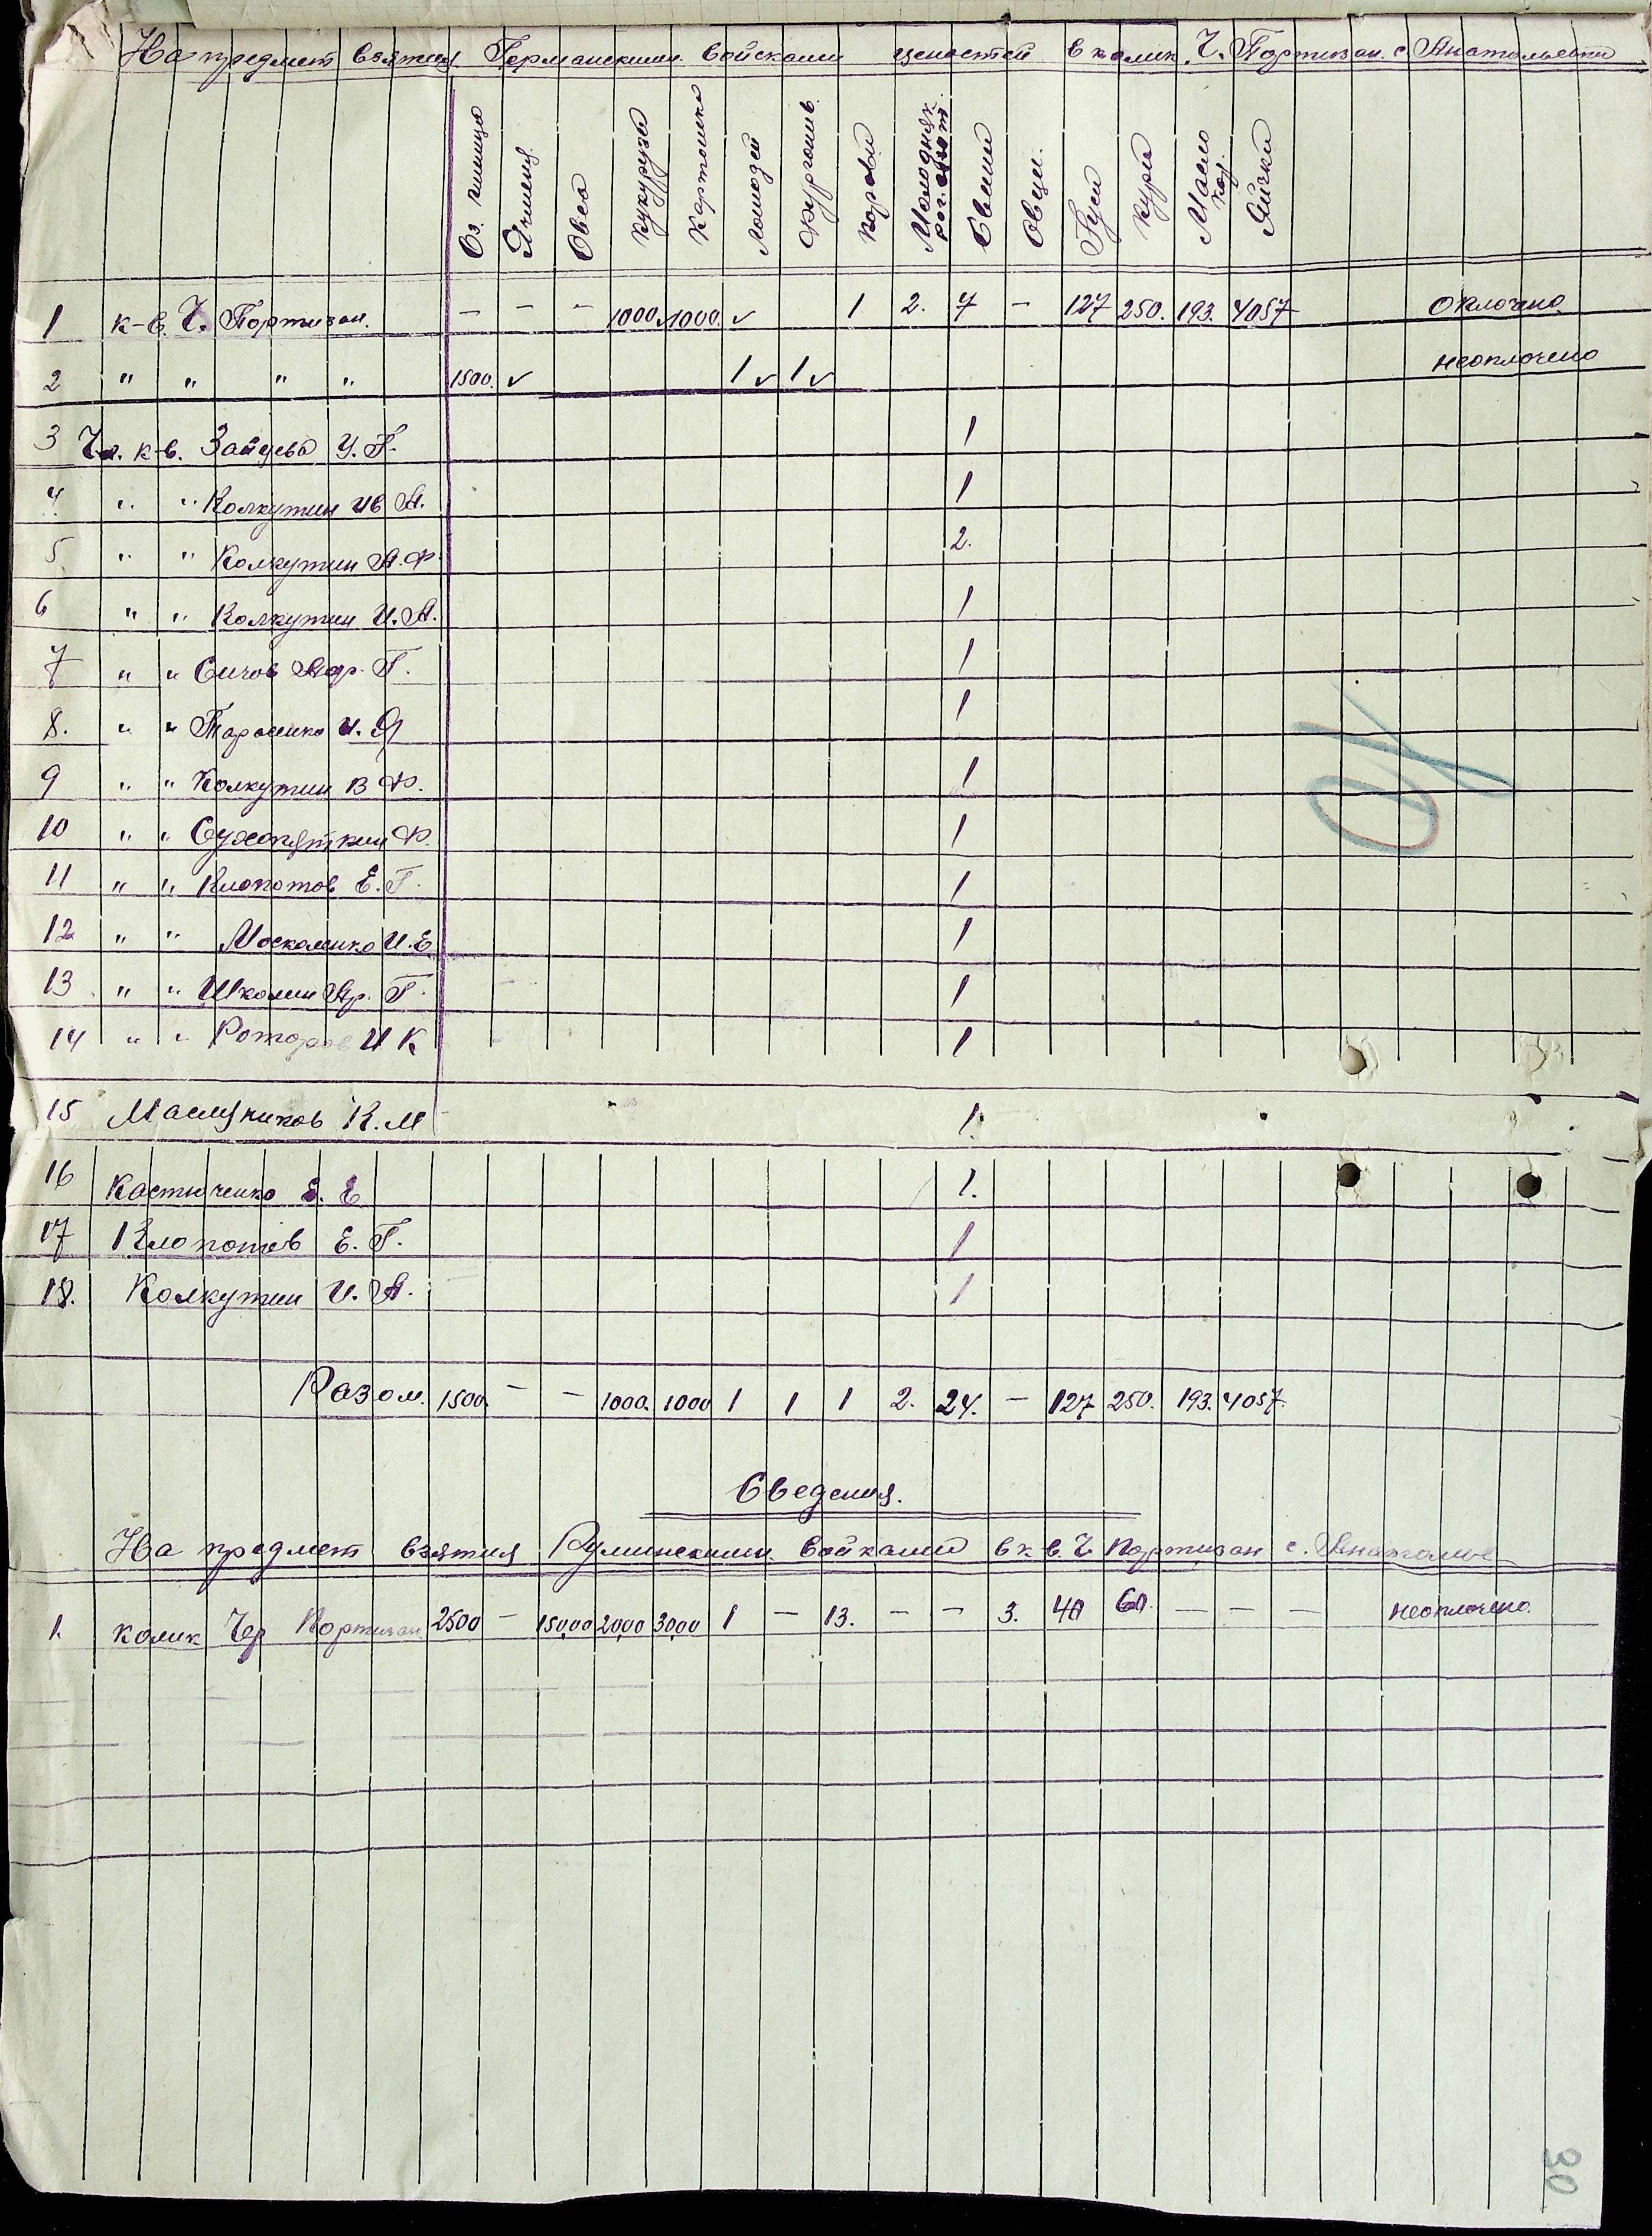 На предмет взятия Германскими войсками ценостей в колик. Ч. Портизан. с Анатольевки
Оз. пшица Ячмень Овса кукурузы Картошка лошадей Фургонив. Коровы Молодняк рог. скот Свиний Овци. Гуси куры Масло кор. Яички
1 к-в. Ч. Портизан. — — — 1000 1000. ✓ 1 2. 7 — 127 250. 193. 4057 Оплочено
2 " " " " 1500. ✓ 1 ✓ 1 ✓ неоплочено
3 Чл. к-в. Зайцева У. П. 1
4 " " Колкутин Ив А. 1
5 " " Колкутин А. Ф. 2.
6 " " Колкутин И. А. 1
7 " " Сичов Г. 1
8. " " И. Я 1
9 " " Колкутин В Ф. 1
10 " " Сухопяткин Ф. 1
11 " " Клопотов Е. Г. 1
12 " " Москаленко И. Е 1
13 " " Школин Ар. Г. 1
14 " " Роторов И К 1
15 Маслуников К. М 1.
16 Костюченко Е. Е 1.
17 Клопотов Е. Г. 1
18. Колкутин И. А. 1
Разом. 1500. — — 1000. 1000 1 1 1 2. 24. — 127 250. 193. 4057.
Сведения.
На предмет взятия Румынскими войками в к в. Ч Портизан с. Анатолье
1. колик Чер Портизан. 2500 — 15000 2000 3000 1 — 13. — — 3. 40 60. — — — неоплочено.
30